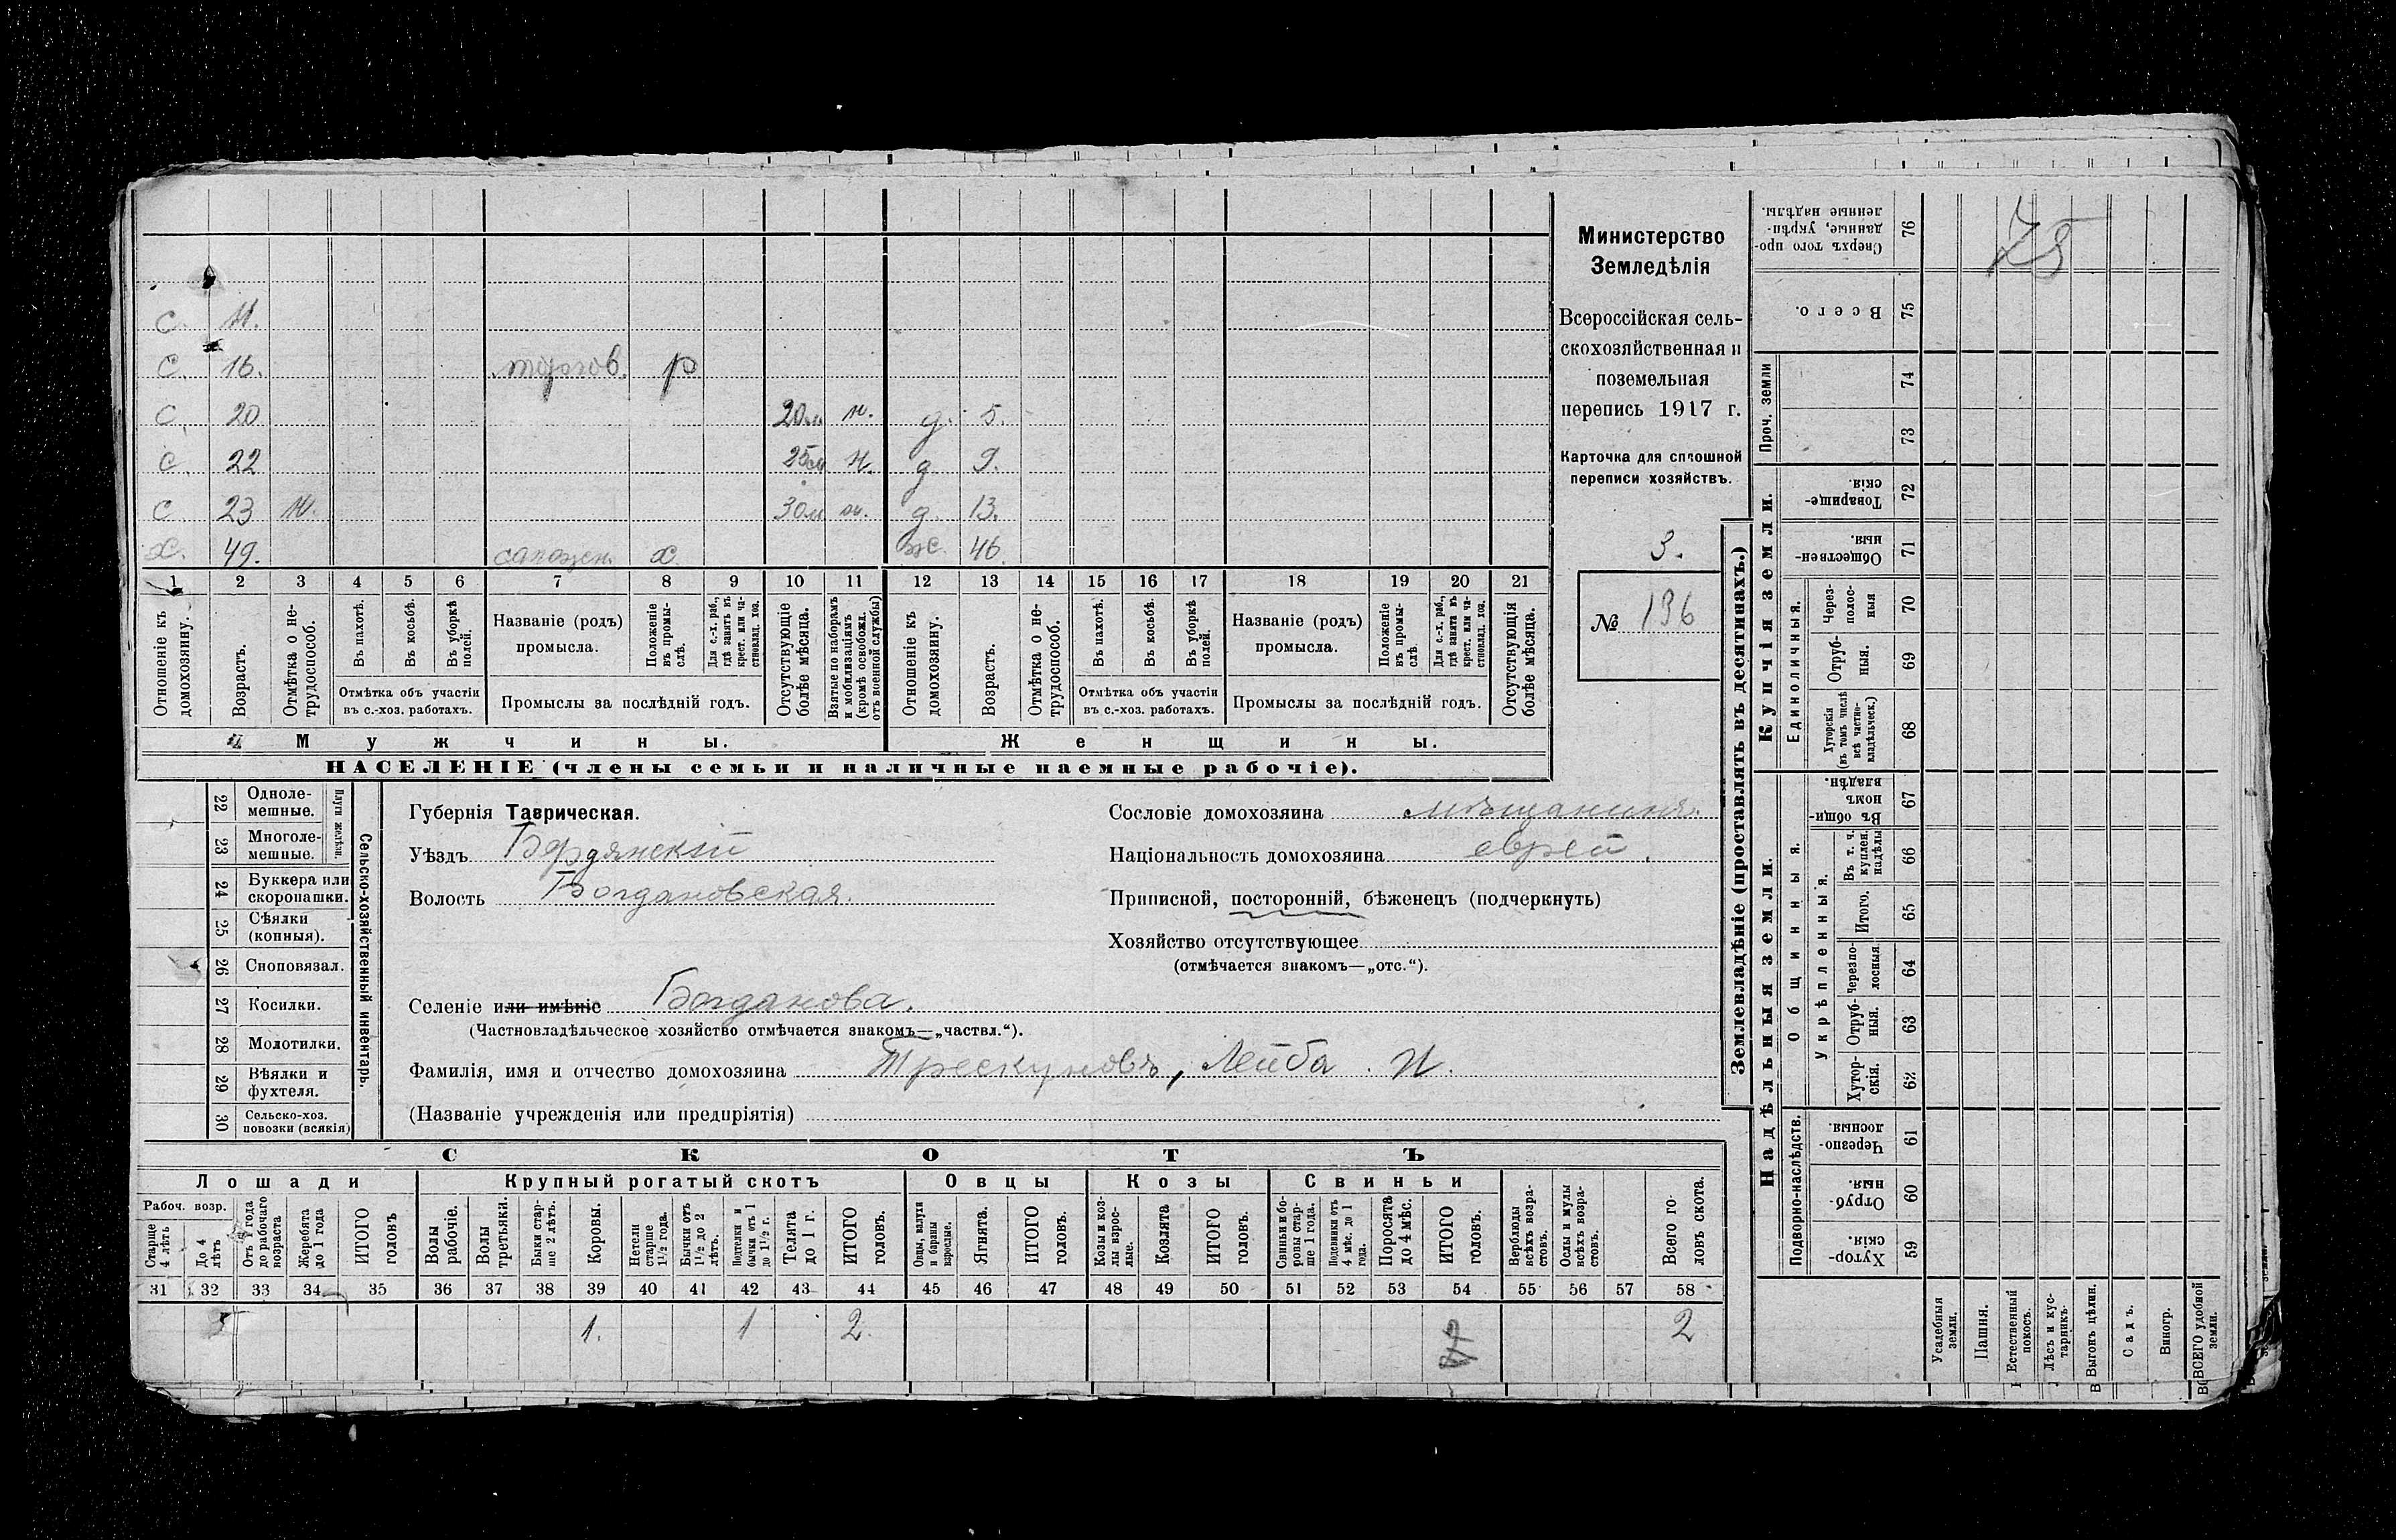 с. 11.
с. 16. торгов. р
с. 20 20м н. д. 5.
с. 22 25м н. д 9.
с 23 н. 30м н. д. 13.
х. 49. сапожн. х. ж. 46.
1 2 3 4 5 6 7 8 9 10 11 12 13 14 15 16 17 18 19 20 21
Отношеніе къ домохозяину.
Возрастъ.
Отмѣтка о нетрудоспособ.
Въ пахотѣ.
Въ косьбѣ.
Въ уборкѣ полей.
Отмѣтка объ участіи
въ с.-хоз. работахъ.
Названіе (родъ)
промысла.
Положеніе въ промыслѣ.
Для с.-х. раб., гдѣ занятъ въ крест. или частновлад. хоз.
Промыслы за послѣдній годъ.
Отсутствующіе болѣе мѣсяца.
Взятые по наборамъ и мобилизаціямъ (кромѣ освобожд. отъ военной службы)
Отношеніе къ домохозяину.
Возрастъ.
Отмѣтка о нетрудоспособ.
Въ пахотѣ.
Въ косьбѣ.
Въ уборкѣ полей.
Отмѣтка объ участіи
въ с.-хоз. работахъ.
Названіе (родъ)
промысла.
Положеніе въ промыслѣ.
Для с.-х. раб., гдѣ занята въ крест. или частновлад. хоз.
Промыслы за послѣдній годъ.
Отсутствующія болѣе мѣсяца.
Мужчины.
Женщины.
НАСЕЛЕНІЕ (члены семьи и наличные наемные рабочіе).
Министерство
Земледѣлія
Всероссійская сель-
скохозяйственная и
поземельная
перепись 1917 г.
Карточка для сплошной
переписи хозяйствъ.
3.
№ 196
22 Одноле-
мешные.
23 Многоле-
мешные.
Плуги желѣзн.
24 Буккера или
скоропашки.
25 Сѣялки
(конныя).
26 Сноповязал.
27 Косилки.
28 Молотилки.
29 Вѣялки и
фухтеля.
30 Сельско-хоз.
повозки (всякія)
Сельско-хозяйственный инвентарь.
Губернія Таврическая.
Уѣздъ Бердянскій
Волость Богдановская.
Селеніе или имѣніе Богданова.
(Частновладѣльческое хозяйство отмѣчается знакомъ—„частвл.“).
Фамилія, имя и отчество домохозяина Трескуновъ, Лейба И.
(Названіе учрежденія или предпріятія)
Сословіе домохозяина мѣщанинъ.
Національность домохозяина еврей.
Приписной, посторонній, бѣженецъ (подчеркнуть)
Хозяйство отсутствующее
(отмѣчается знакомъ—„отс.“).
СКОТЪ
Лошади
Крупный рогатый скотъ
Овцы
Козы
Свиньи
Рабоч. возр.
Старше 4 лѣтъ
До 4 лѣтъ
Отъ 1 года до рабочаго возраста
Жеребята до 1 года
ИТОГО головъ
Волы рабочіе.
Волы третьяки.
Быки старше 2 лѣтъ.
Коровы.
Нетели старше 1½ года.
Бычки отъ 1½ до 2 лѣтъ.
Подтелки и бычки отъ 1 до 1½ г.
Телята до 1 г.
ИТОГО головъ.
Овцы, валухи и бараны взрослые.
Ягнята.
ИТОГО головъ.
Козы и козлы взрослые.
Козлята
ИТОГО головъ.
Свиньи и боровы старше 1 года.
Подсвинки отъ 4 мѣс. до 1 года.
Поросята до 4 мѣс.
ИТОГО головъ.
Верблюды всѣхъ возрастовъ.
Ослы и мулы всѣхъ возрастовъ.
Всего головъ скота.
31 32 33 34 35 36 37 38 39 40 41 42 43 44 45 46 47 48 49 50 51 52 53 54 55 56 57 58
1. 1 2. 2
Землевладѣніе (проставлять въ десятинахъ.)
Надѣльныя земли.
Купчія земли.
Проч. земли
Подворно-наслѣдств.
Общинныя.
Укрѣпленныя.
Единоличныя.
Сверхъ того проданные, укрѣпленные надѣлы. 76
75
Всего. 75
74
73
Товарищескія. 72
Общественныя. 71
Черезполосныя 70
Отрубныя. 69
Хуторскія (въ томъ числѣ всѣ частновладѣльческ.) 68
Въ общинномъ владѣн. 67
Въ т. ч. куплен. надѣлы 66
Итого. 65
Черезполосныя 64
Отрубныя. 63
Хуторскія. 62
Черезполосныя. 61
Отрубныя. 60
Хуторскія. 59
Усадебныя земли.
Пашня.
Естественный покосъ.
Лѣсъ и кустарникъ.
Выгонъ цѣлин.
Садъ.
Виногр.
ВСЕГО удобной земли.